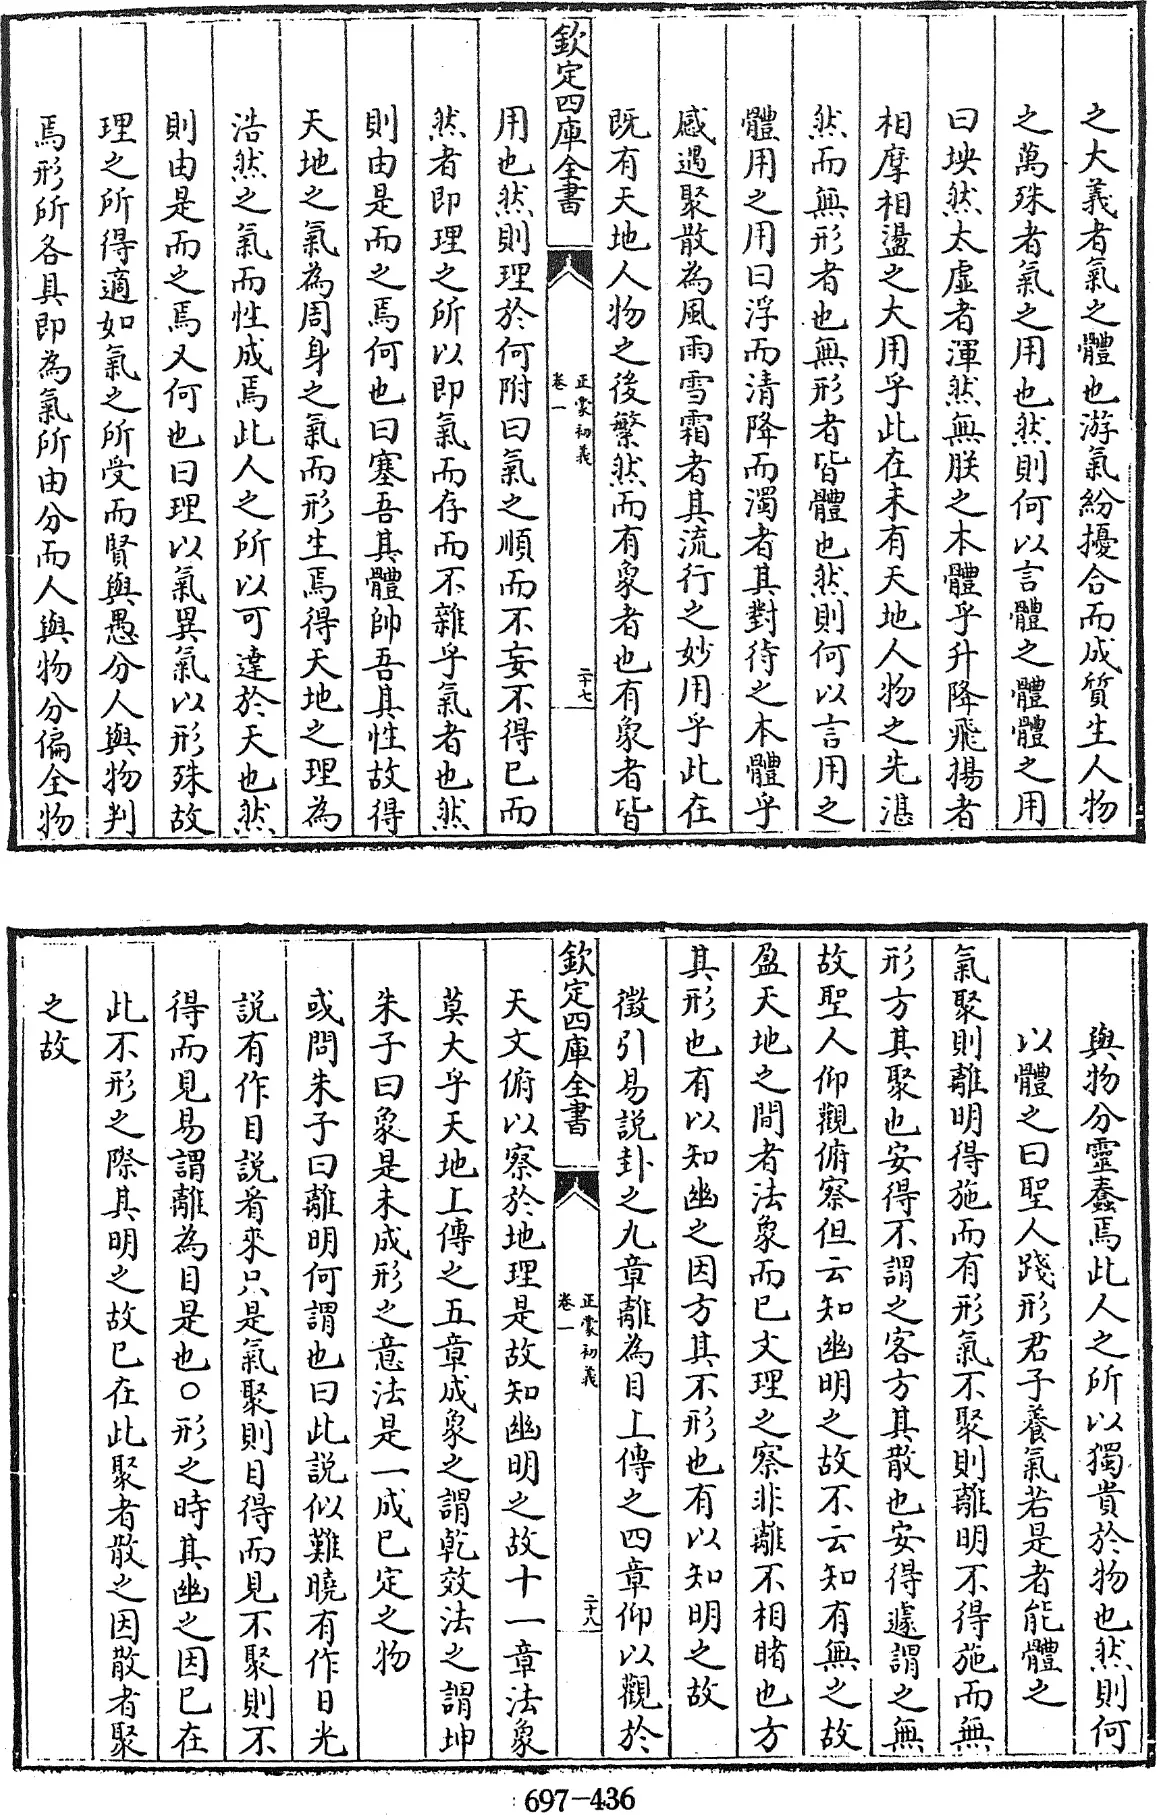 之大義者氣之體也游氣紛擾合而成質生人物
之萬殊者氣之用也然則何以言體之體體之用
曰坱然太虛者渾然無朕之本體乎升降飛揚者
相摩相盪之大用乎此在未有天地人物之先湛
然而無形者也無形者皆體也然則何以言用之
體用之用曰浮而清降而濁者其對待之本體乎
感遇聚散為風雨雪霜者其流行之妙用乎此在
既有天地人物之後繁然而有象者也有象者皆
欽定四庫全書
正蒙初義
卷一
二十七
用也然則理於何附曰氣之順而不妄不得已而
然者即理之所以即氣而存而不雜乎氣者也然
則由是而之焉何也曰塞吾其體帥吾其性故得
天地之氣為周身之氣而形生焉得天地之理為
浩然之氣而性成焉此人之所以可達於天也然
則由是而之焉又何也曰理以氣異氣以形殊故
理之所得適如氣之所受而賢與愚分人與物判
焉形所各具即為氣所由分而人與物分偏全物
與物分靈蠢焉此人之所以獨貴於物也然則何
以體之曰聖人踐形君子養氣若是者能體之
氣聚則離明得施而有形氣不聚則離明不得施而無
形方其聚也安得不謂之客方其散也安得遽謂之無
故聖人仰觀俯察但云知幽明之故不云知有無之故
盈天地之間者法象而已文理之察非離不相睹也方
其形也有以知幽之因方其不形也有以知明之故
徵引易說卦之九章離為目上傳之四章仰以觀於
欽定四庫全書
正蒙初義
卷一
二十八
天文俯以察於地理是故知幽明之故十一章法象
莫大乎天地上傳之五章成象之謂乾效法之謂坤
朱子曰象是未成形之意法是一成已定之物
或問朱子曰離明何謂也曰此説似難曉有作日光
説有作目説看來只是氣聚則目得而見不聚則不
得而見易謂離為目是也○形之時其幽之因已在
此不形之際其明之故已在此聚者散之因散者聚
之故
697-436